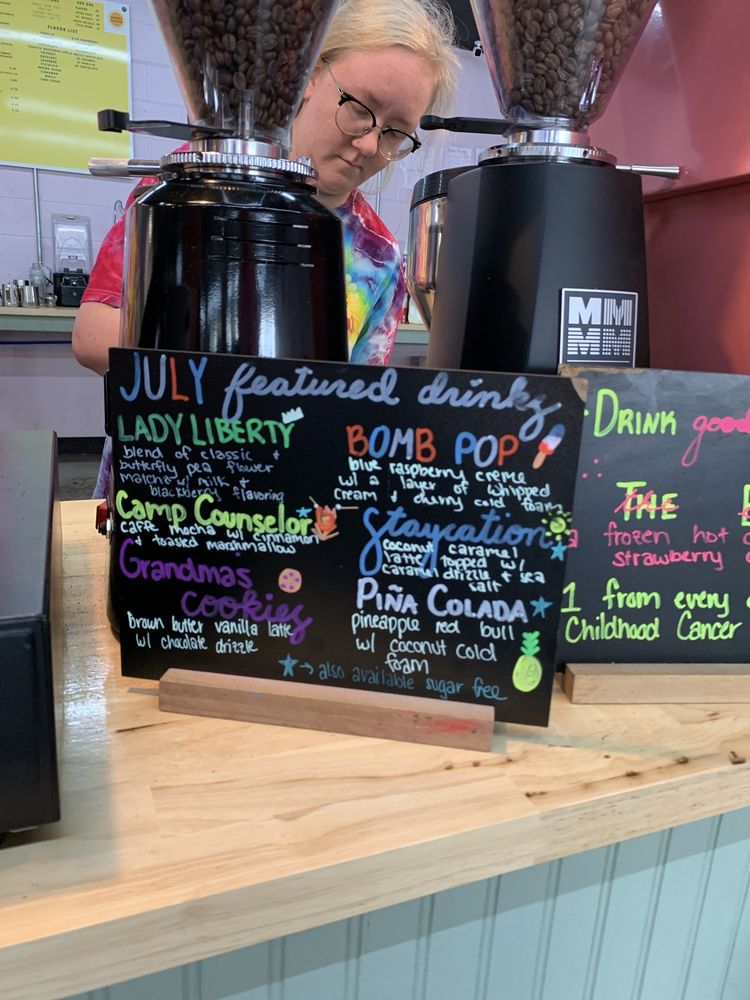 FLAVOR LIST
JULY featured drinks
LADY LIBERTY
blend of classic +
butterfly pea flower
matcha w/ milk +
blackberry flavoring
Camp Counselor
caffe mocha w/ cinnamon
+ toasted marshmallow
Grandmas
cookies
Brown butter vanilla latte
w/ chocolate drizzle
BOMB POP
blue raspberry creme
w/ a layer of whipped
cream + cherry cold foam
Staycation
coconut caramel
latte topped w/
caramel drizzle + sea
salt
PIÑA COLADA
pineapple red bull
w/ coconut cold
foam
also available sugar free
MM
MM
DRINK good
THE
a frozen hot
strawberry
1 from every
Childhood Cancer